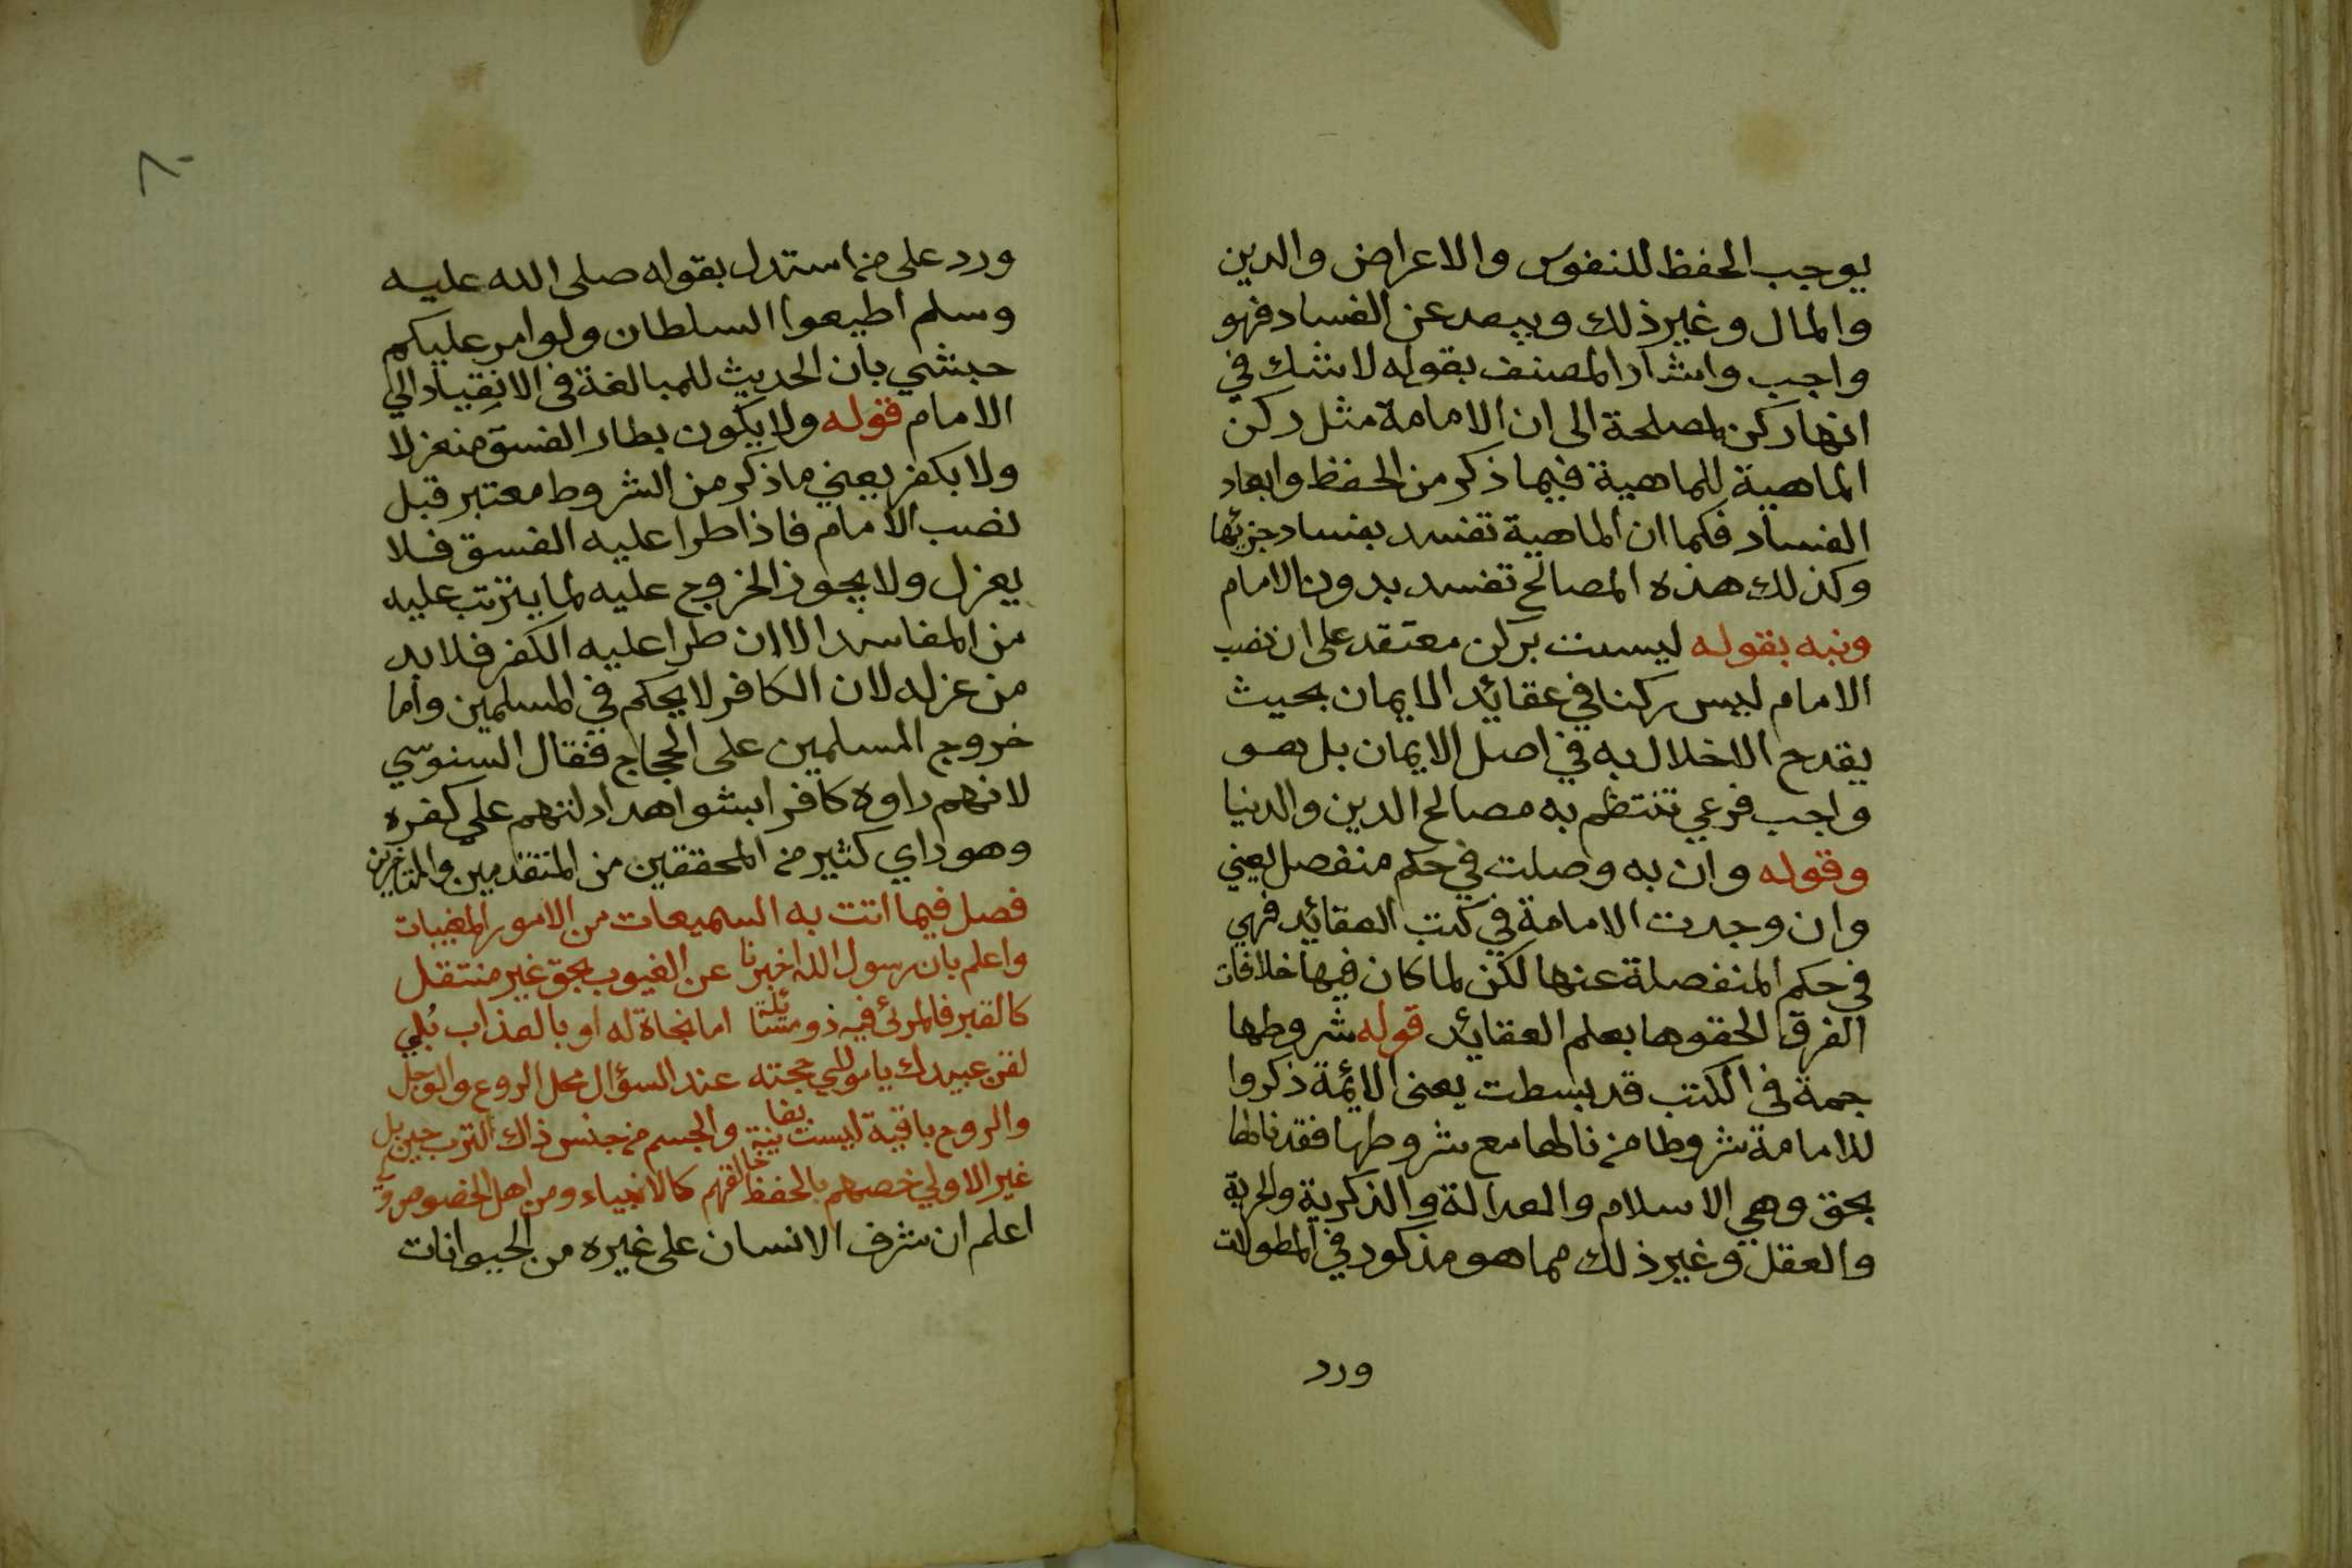 يوجب الحفظ للنفوس والاعراض والدين
والمال وغير ذلك ويبعد عن الفساد فهو
واجب واشار المصنف بقوله لا شك في
انها ركن لمصلحة الى ان الامامة مثل ركن
الماهية للماهية فيما ذكر من الحفظ وابعاد
الفساد فكما ان الماهية تفسد بفساد جزئها
وكذلك هذه المصالح تفسد بدون الامام
ونبه بقوله ليست بركن معتقد على ان نصب
الامام ليس ركنا في عقائد الايمان بحيث
يقدح الاخلال به في اصل الايمان بل هو
واجب فرعي تنتظم به مصالح الدين والدنيا
وقوله وان به وصلت في حكم منفصل يعني
وان وجدت الامامة في كتب العقائد فهي
في حكم المنفصلة عنها لكن لما كان فيها خلافات
الفرق الحقوها بعلم العقائد قوله شروطها
جمة في الكتب قد بسطت يعنى الائمة ذكروا
للامامة شروطا من نالها مع شروطها فقد نالها
بحق وهي الاسلام والعدالة والذكرية والحرية
والعقل وغير ذلك مما هو مذكور في المطولات
ورد
٨٠
ورد على من استدل بقوله صلى الله عليه
وسلم اطيعوا السلطان ولو امر عليكم
حبشي بان الحديث للمبالغة في الانقياد الي
الامام قوله ولا يكون بطار الفسق منعزلا
ولا بكفر يعني ما ذكر من الشروط معتبر قبل
نصب الامام فاذا طرا عليه الفسق فلا
يعزل ولا يجوز الخروج عليه لما يترتب عليه
من المفاسد الا ان طرا عليه الكفر فلا بد
من عزله لان الكافر لا يحكم في المسلمين واما
خروج المسلمين على الحجاج فقال السنوسي
لانهم راوه كافرا بشواهد ادلتهم علي كفره
وهو راي كثير من المحققين من المتقدمين والمتاخرين
فصل فيما اتت به السميعات من الامور المغيبات
واعلم بان رسول الله اخبرنا عن الغيوب بحق غير منتقل
كالقبر فالمرئ فيه ذو مسئلة اما نجاة له او بالعذاب بُلي
لقن عبيدك يا مولاي حجته عند السؤال محل الروع والوجل
والروح باقية ليست بفانية والجسم من جنس ذاك الترب حين بلي
غير الاولي خصهم بالحفظ خالقهم كالانبياء ومن اهل الخصوص
اعلم ان شرف الانسان على غيره من الحيوانات